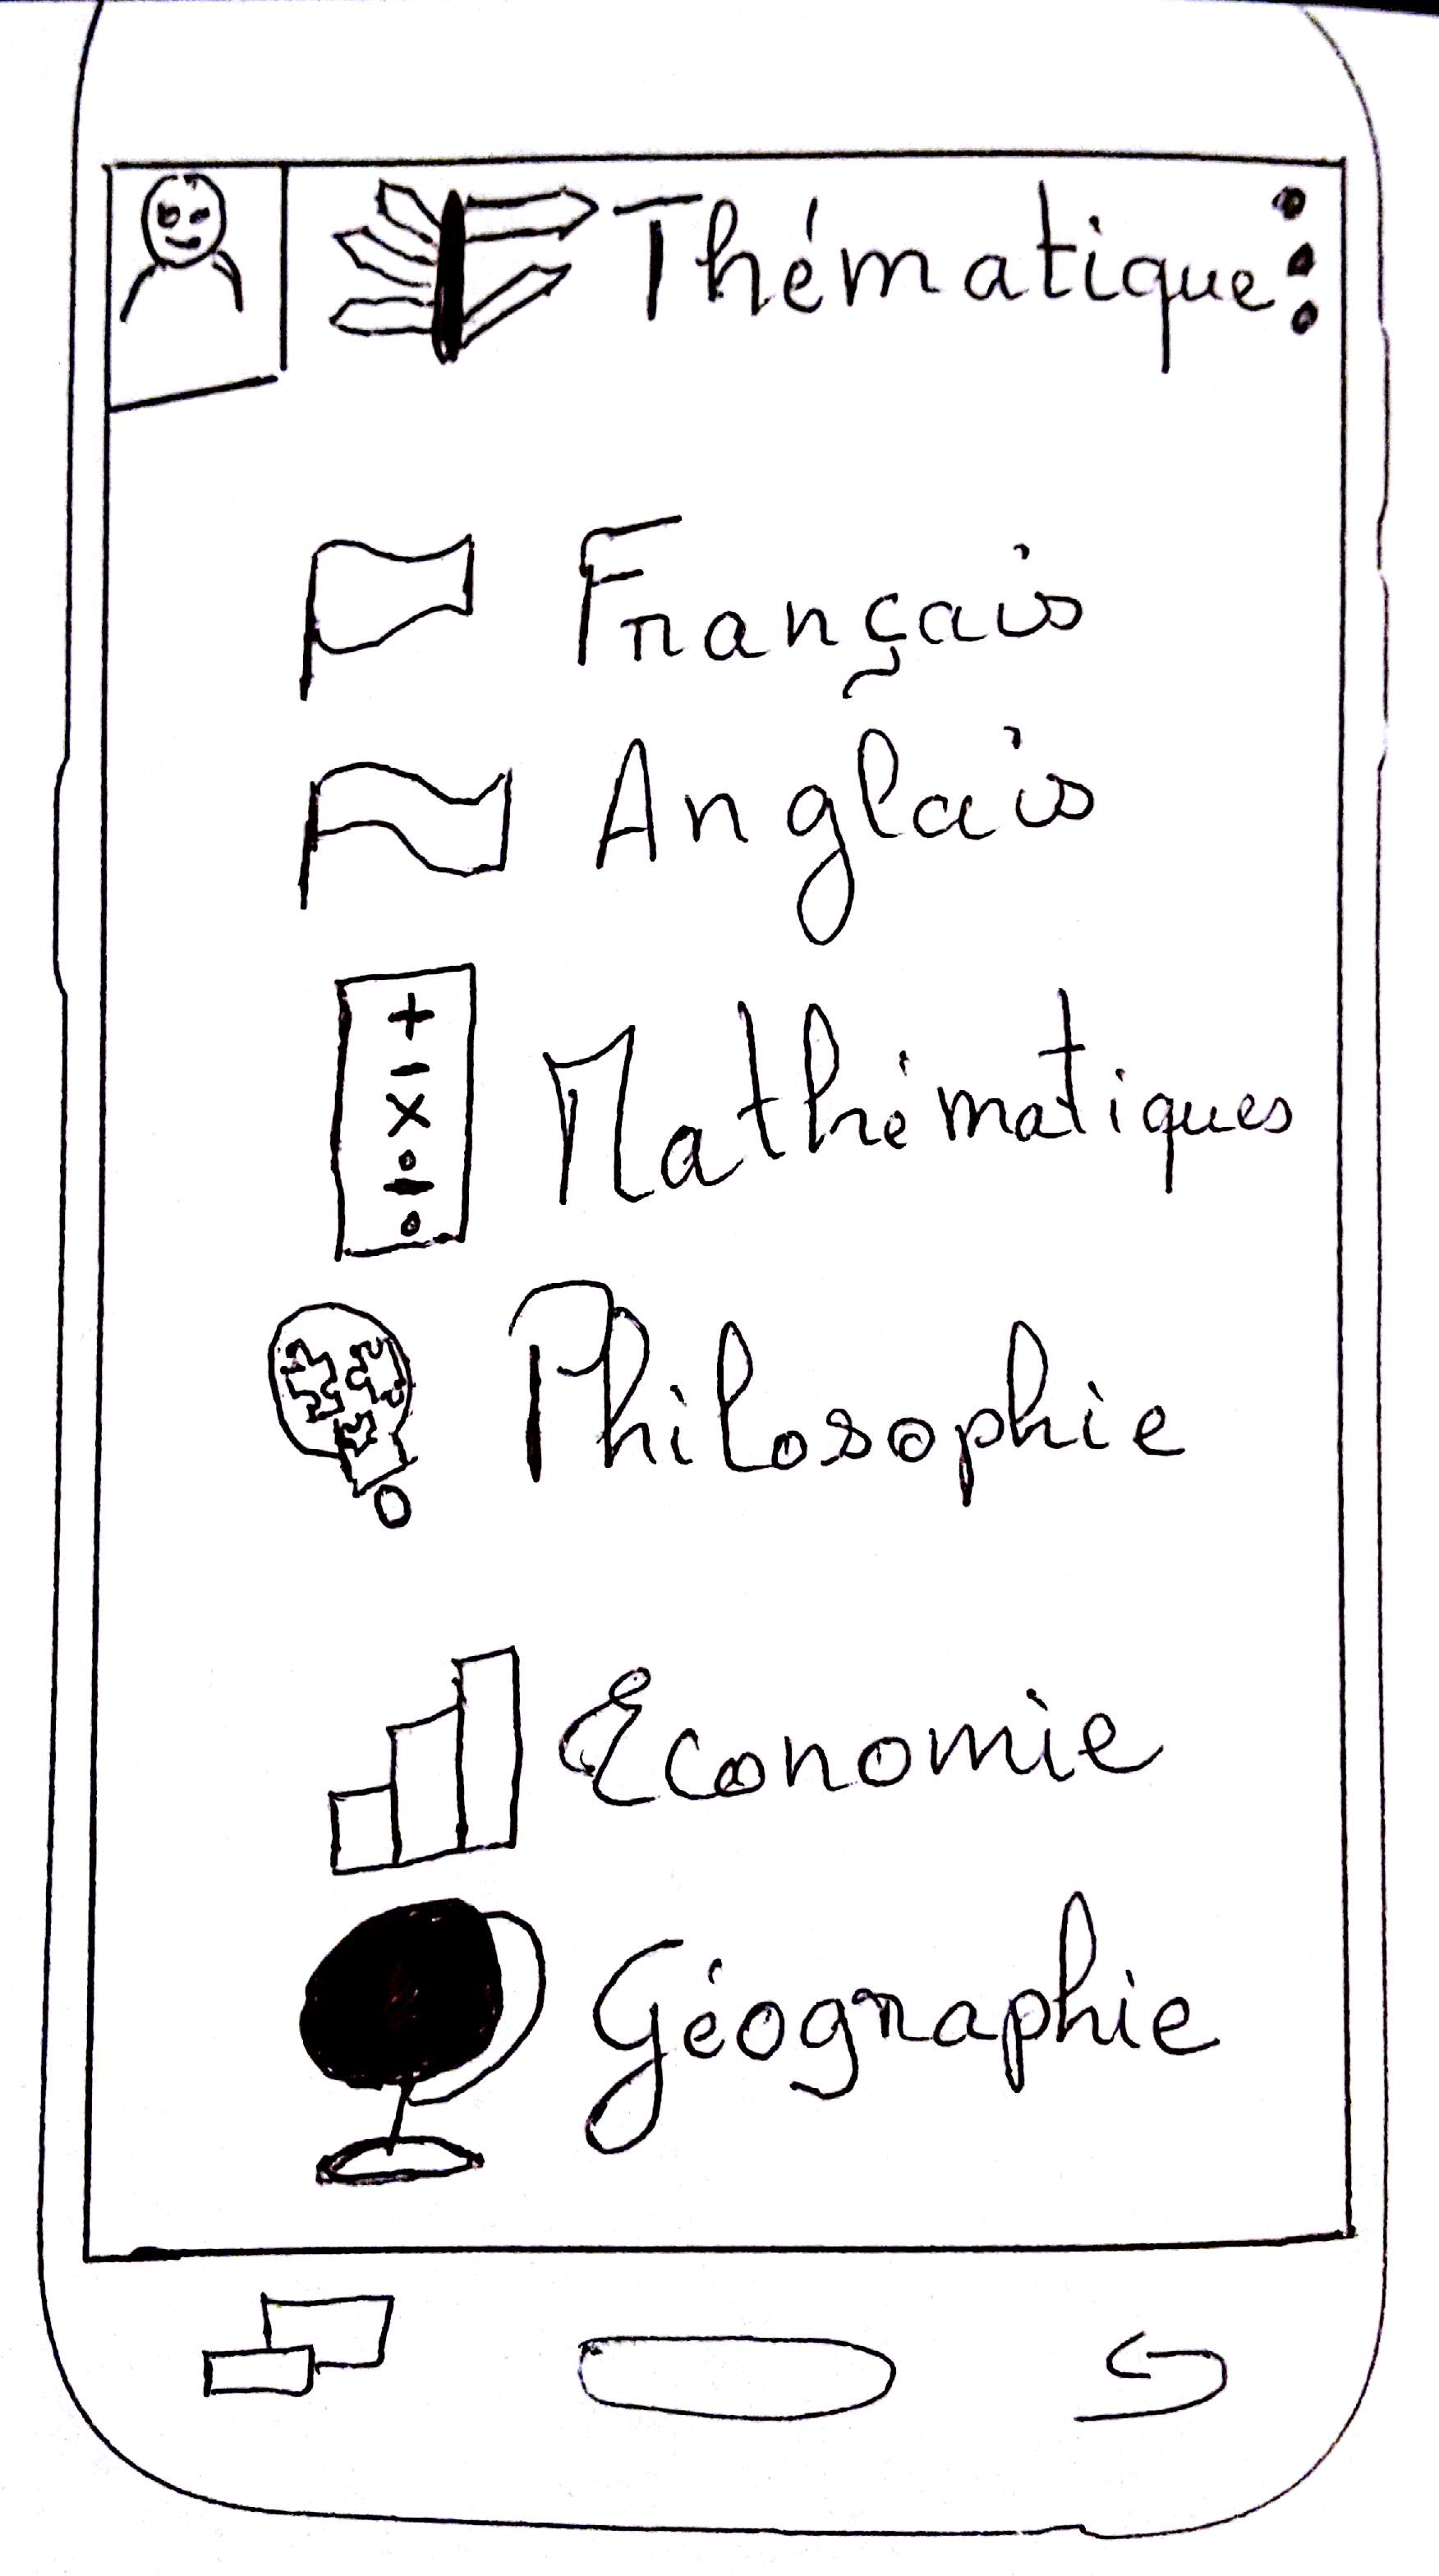 Thématique
Français
Anglais
+
-
×
÷
Mathématiques
Philosophie
Economie
Géographie